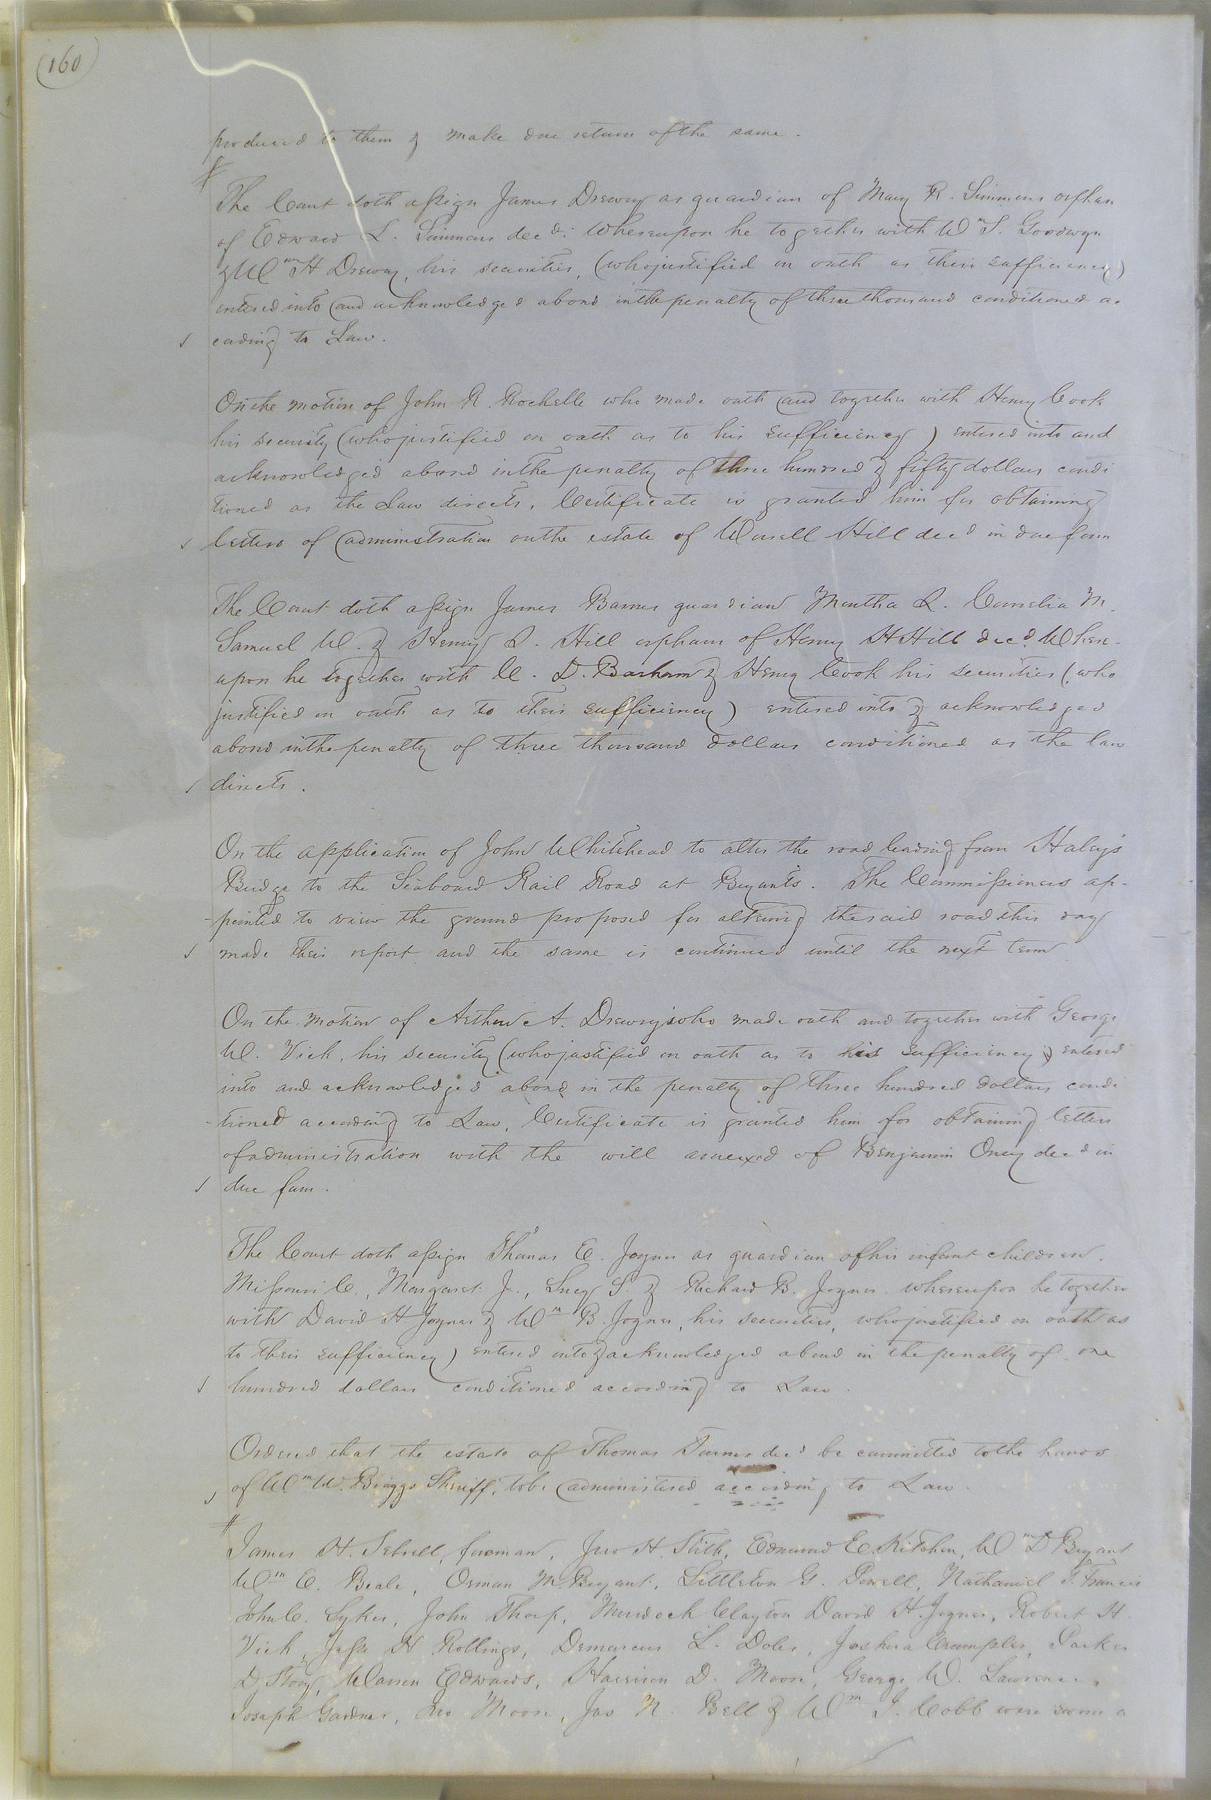 (160)
produced to them & make due return of the same.
The Court doth assign James Drewry as guardian of Mary R. Simmons orphan
of Edward L. Simmons decd: Whereupon he together with Wm S. Goodwyn
& Wm H Drewry, his securities, (who justified on oath as their sufficiency)
entered into and acknowledged abond in the penalty of three thousand conditioned ac
cording to Law.
On the motion of John R. Rochelle who made oath and together with Henry Cook
his security (who justified on oath as to his sufficiency) entered into and
acknowledged abond in the penalty of three hundred & fifty dollars condi
tioned as the Law directs, Certificate is granted him for obtaining
letters of administration on the estate of Hill decd in due form
The Court doth assign James Barnes guardian Martha L. Cornelia M.
Samuel W. & Henry L. Hill orphans of Henry H Hill decd. Where-
upon he together with C. D. Barham & Henry Cook his securities (who
justified on oath as to their sufficiency) entered into & acknowledged
abond in the penalty of three thousand dollars conditioned as the law
directs.
On the application of John Whitehead to alter the road leading from Haley's
Bridge to the Seaboard Rail Road at Bryants. The Commissioners ap-
-pointed to view the ground proposed for altering the said road this day
made their report and the same is continued until the next term
On the motion of Arthur A. Drewry who made oath and together with George
W. Vick, his security (who justified on oath as to his sufficiency) entered
into and acknowledged abond in the penalty of three hundred dollars condi
-tioned according to Law, Certificate is granted him for obtaining letters
of administration with the will annexed of Benjamin Oney decd in
due form.
The Court doth assign Thomas E. Joyner as guardian of his infant children.
Missouri C., Margaret J., Lucy S. & Richard B. Joyner whereupon he together
with David H Joyner & Wm B. Joyner, his securities, who justified on oath as
to their sufficiency) entered into & acknowledged abond in the penalty of one
hundred dollars conditioned according to Law.
Ordered that the estate of Thomas Turner decd be committed to the hands
of Wm W. Briggs Sheriff, to be administered according to Law.
James H. Sebrell, foreman, Jno H. Stith, Edmund E. Kitchen, Wm D Bryant
Wm E. Beale, Orman M Bryant, Littleton G. Powell, Nathaniel T. Francis
John C. Sykes, John Thorp, Murdock Clayton David H. Joyner, Robert H.
Vick, Jesse H Rollings, Demarcus L. Doles, Joshua Crumpler, Parker
D. Story, Warren Edwards, Harrison D. Moore, George W. Lawrence,
Joseph Gardner, Moore, Jas N. Bell & Wm J. Cobb were sworn a